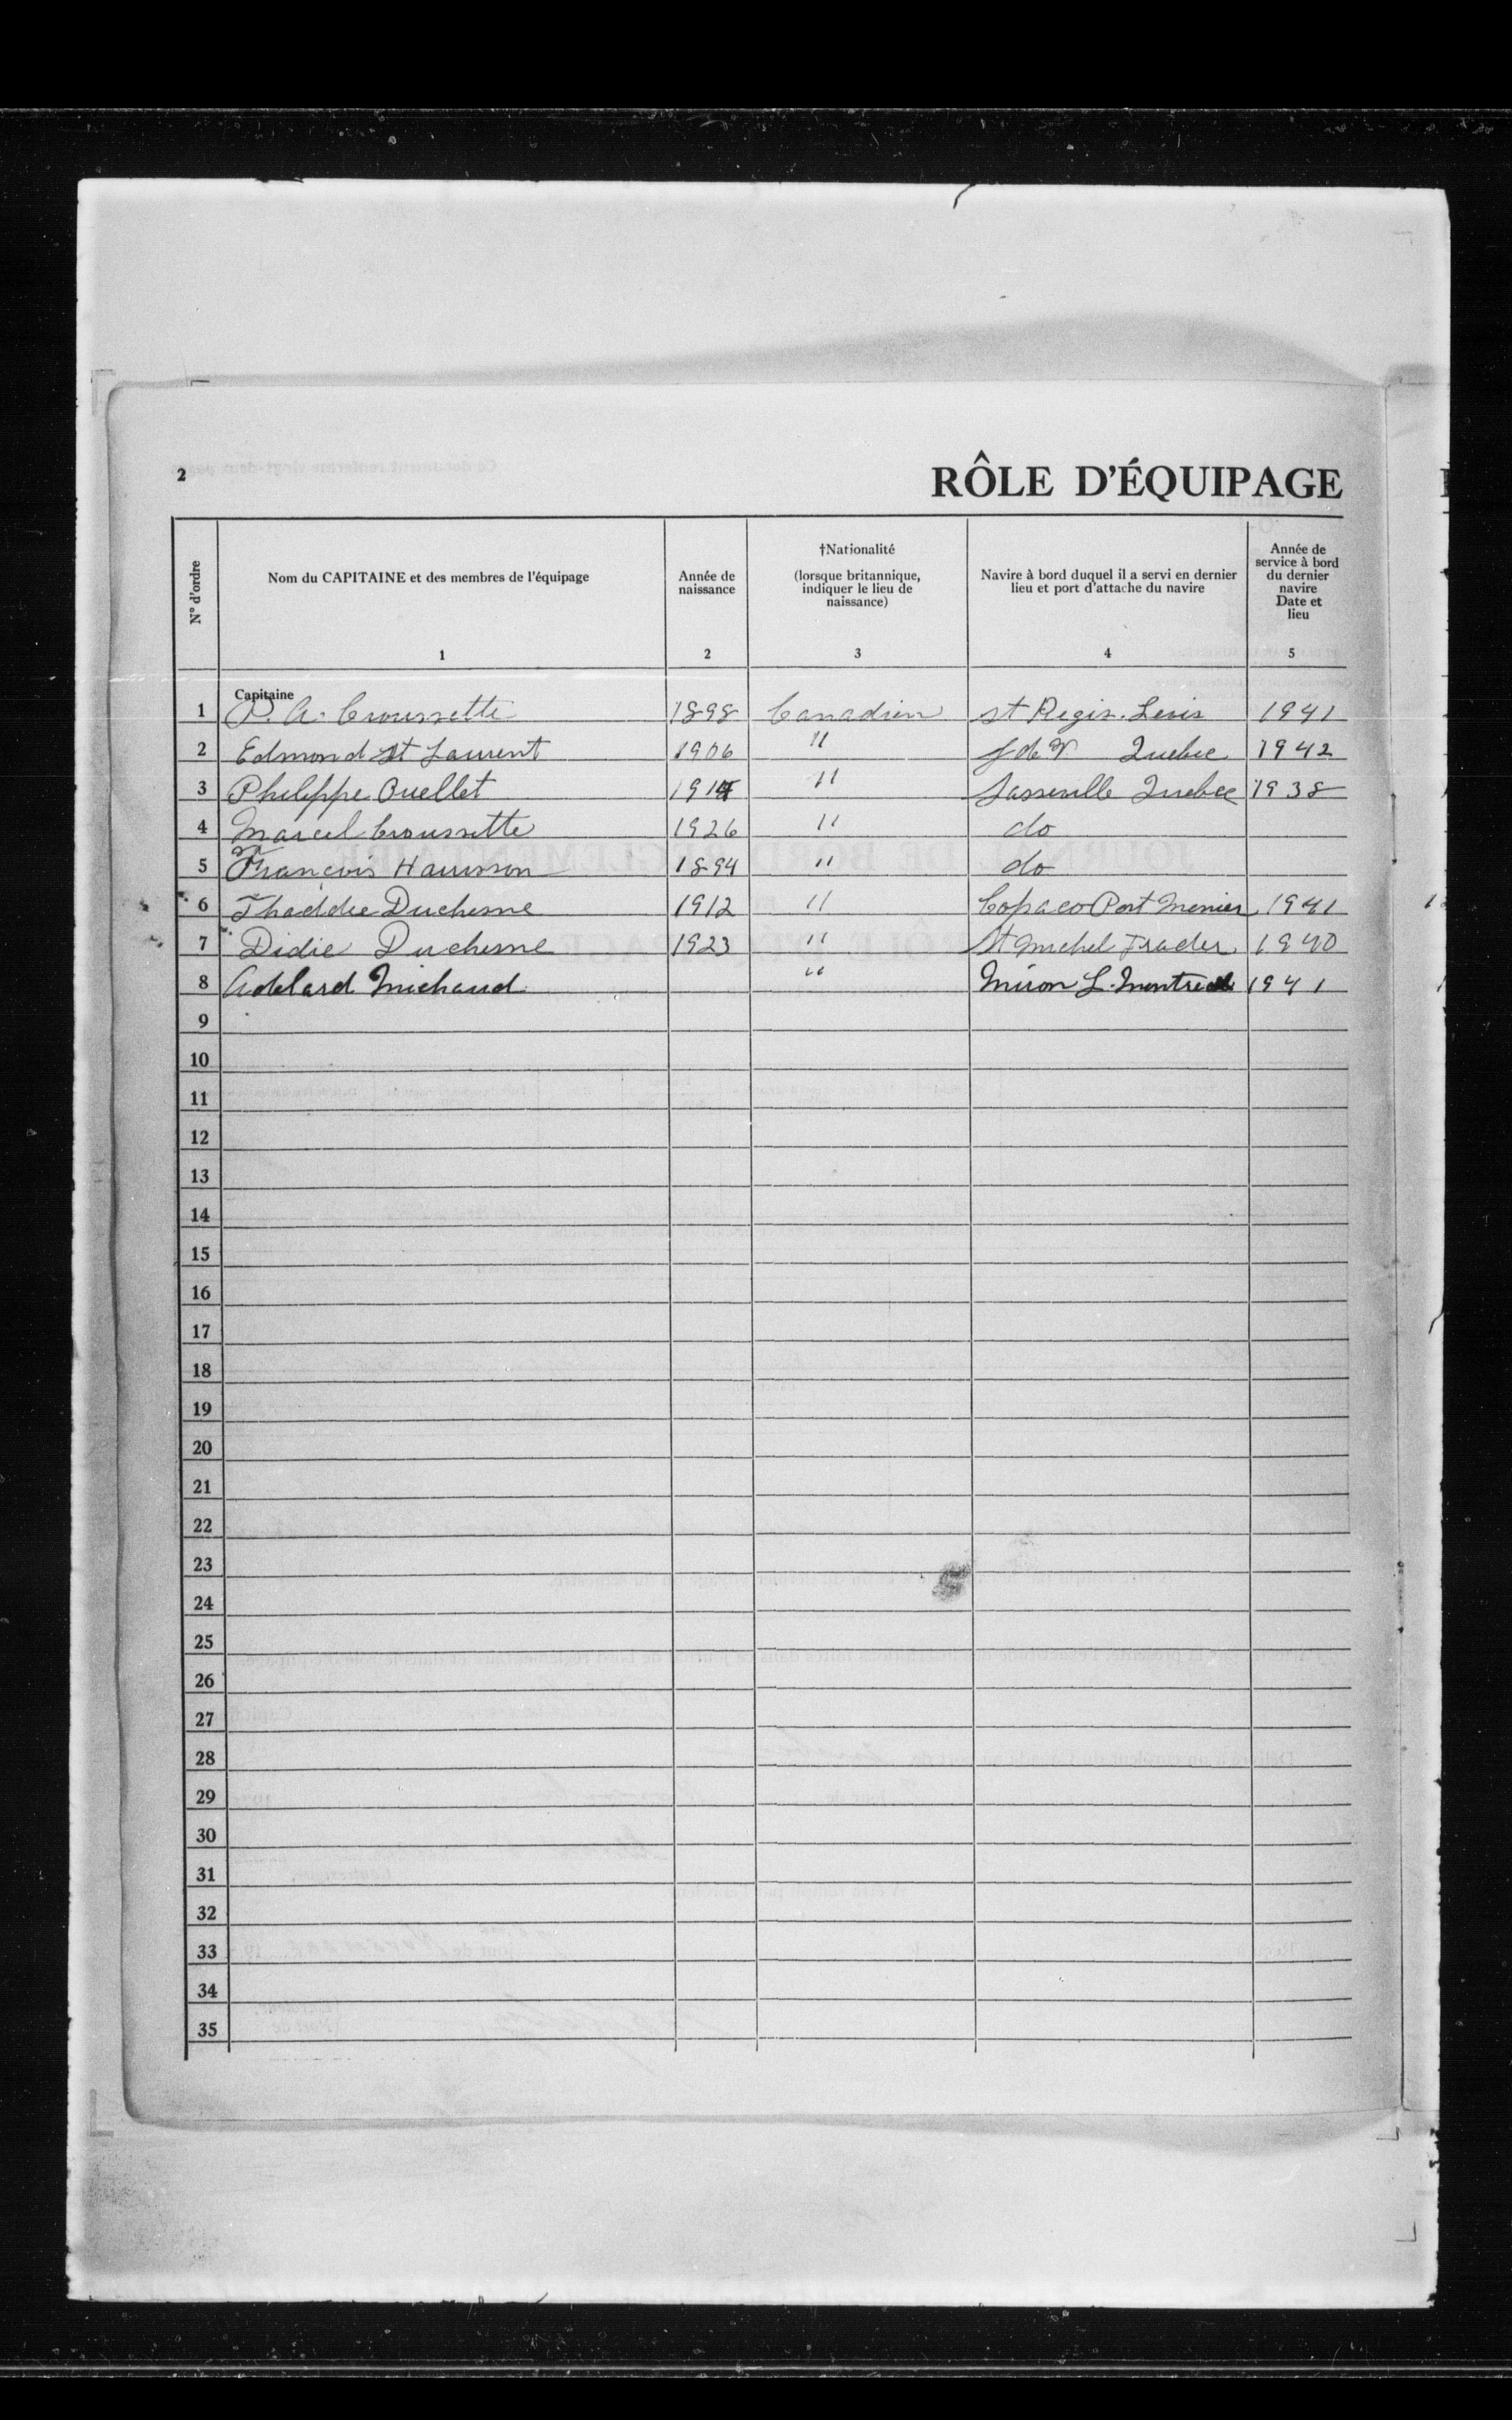 2
RÔLE D'ÉQUIPAGE
N° d'ordre
Nom du CAPITAINE et des membres de l'équipage
1
Année de
naissance
2
†Nationalité
(lorsque britannique,
indiquer le lieu de
naissance)
3
Navire à bord duquel il a servi en dernier
lieu et port d'attache du navire
4
Année de
service à bord
du dernier
navire
Date et
lieu
5
Capitaine
1 P. A. Croussette 1898 Canadien St Regis. Levis 1941
2 Edmond St Laurent 1906 " Quebec 1942
3 Philippe Ouellet " Sasseville Quebec 1938
4 Marcel Croussette 1926 " do
5 François Harrisson 1894 " do
6 Thaddée Duchesne 1912 " Copaco Port Menier 1941
7 Didie Duchesne 1923 " St Michel Trader 1940
8 Adelard Michaud " Miron L. Montreal 1941
9
10
11
12
13
14
15
16
17
18
19
20
21
22
23
24
25
26
27
28
29
30
31
32
33
34
35